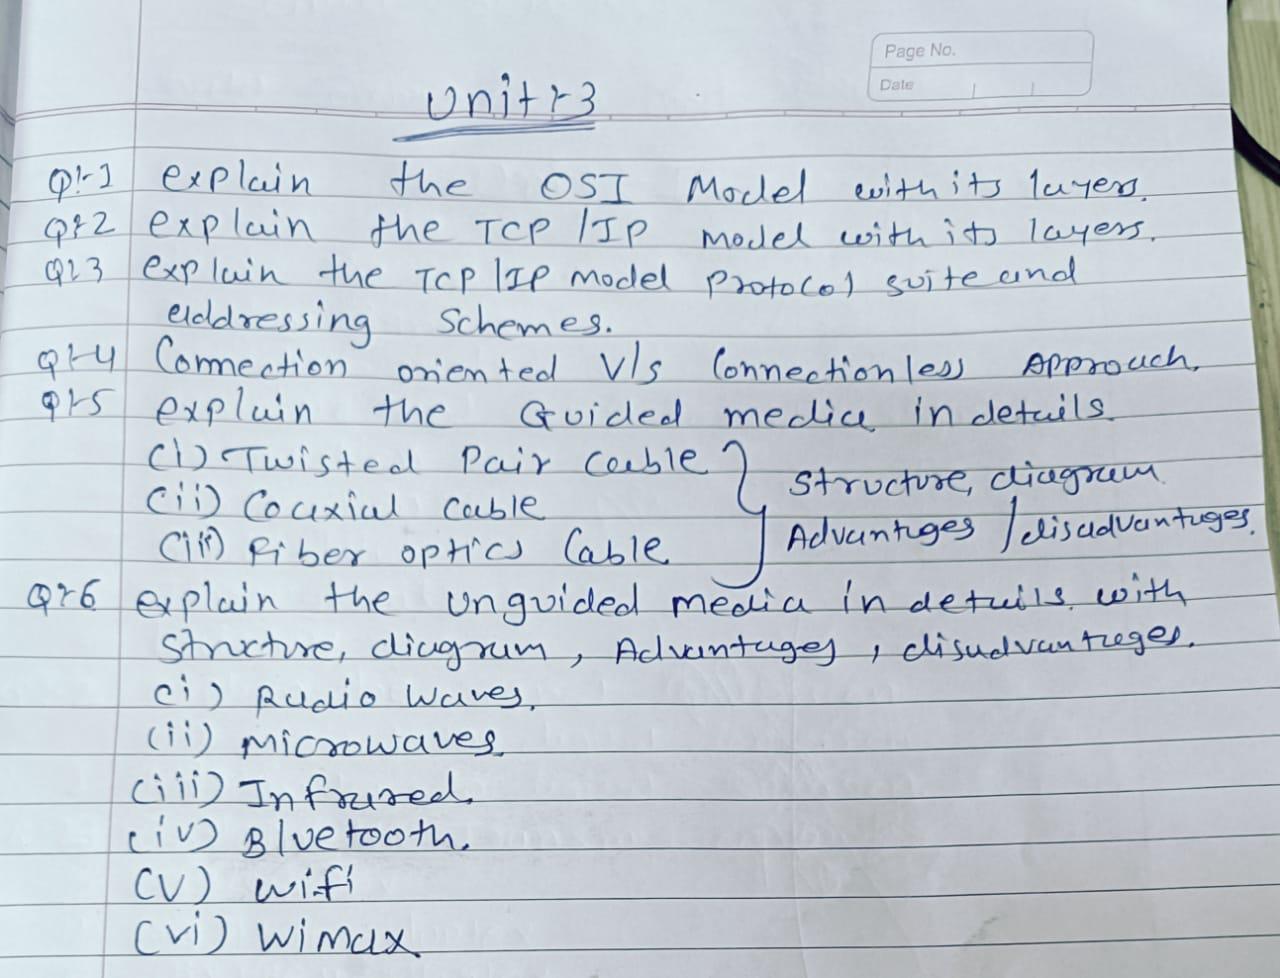 Page No.
Date
Unit:-3
Q:-1 explain the OSI Model with its layers.
Q:2 explain the TCP/IP model with its layers.
Q:3 explain the TCP/IP model Protocol suite and
addressing Schemes.
Q:-4 Connection oriented V/s Connectionless Approach.
Q:-5 explain the Guided media in details
(i) Twisted Pair Cable
(ii) Coaxial Cable
(iii) Fiber optics Cable
Structure, diagram
Advantages / disadvantages.
Q:-6 explain the unguided media in details with
Structure, diagram, Advantages, disadvantages.
(i) Radio Waves.
(ii) Microwaves
(iii) Infrared.
(iv) Bluetooth.
(v) wifi
(vi) Wimax